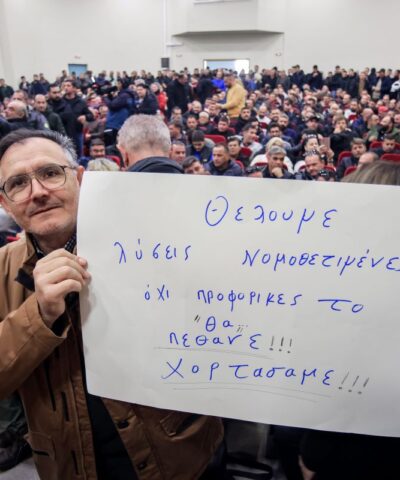 Θελουμε
λύσεις Νομοθετιμένες
όχι προφορικες το
"θα"
πεθανε!!!
Χορτασαμε!!!